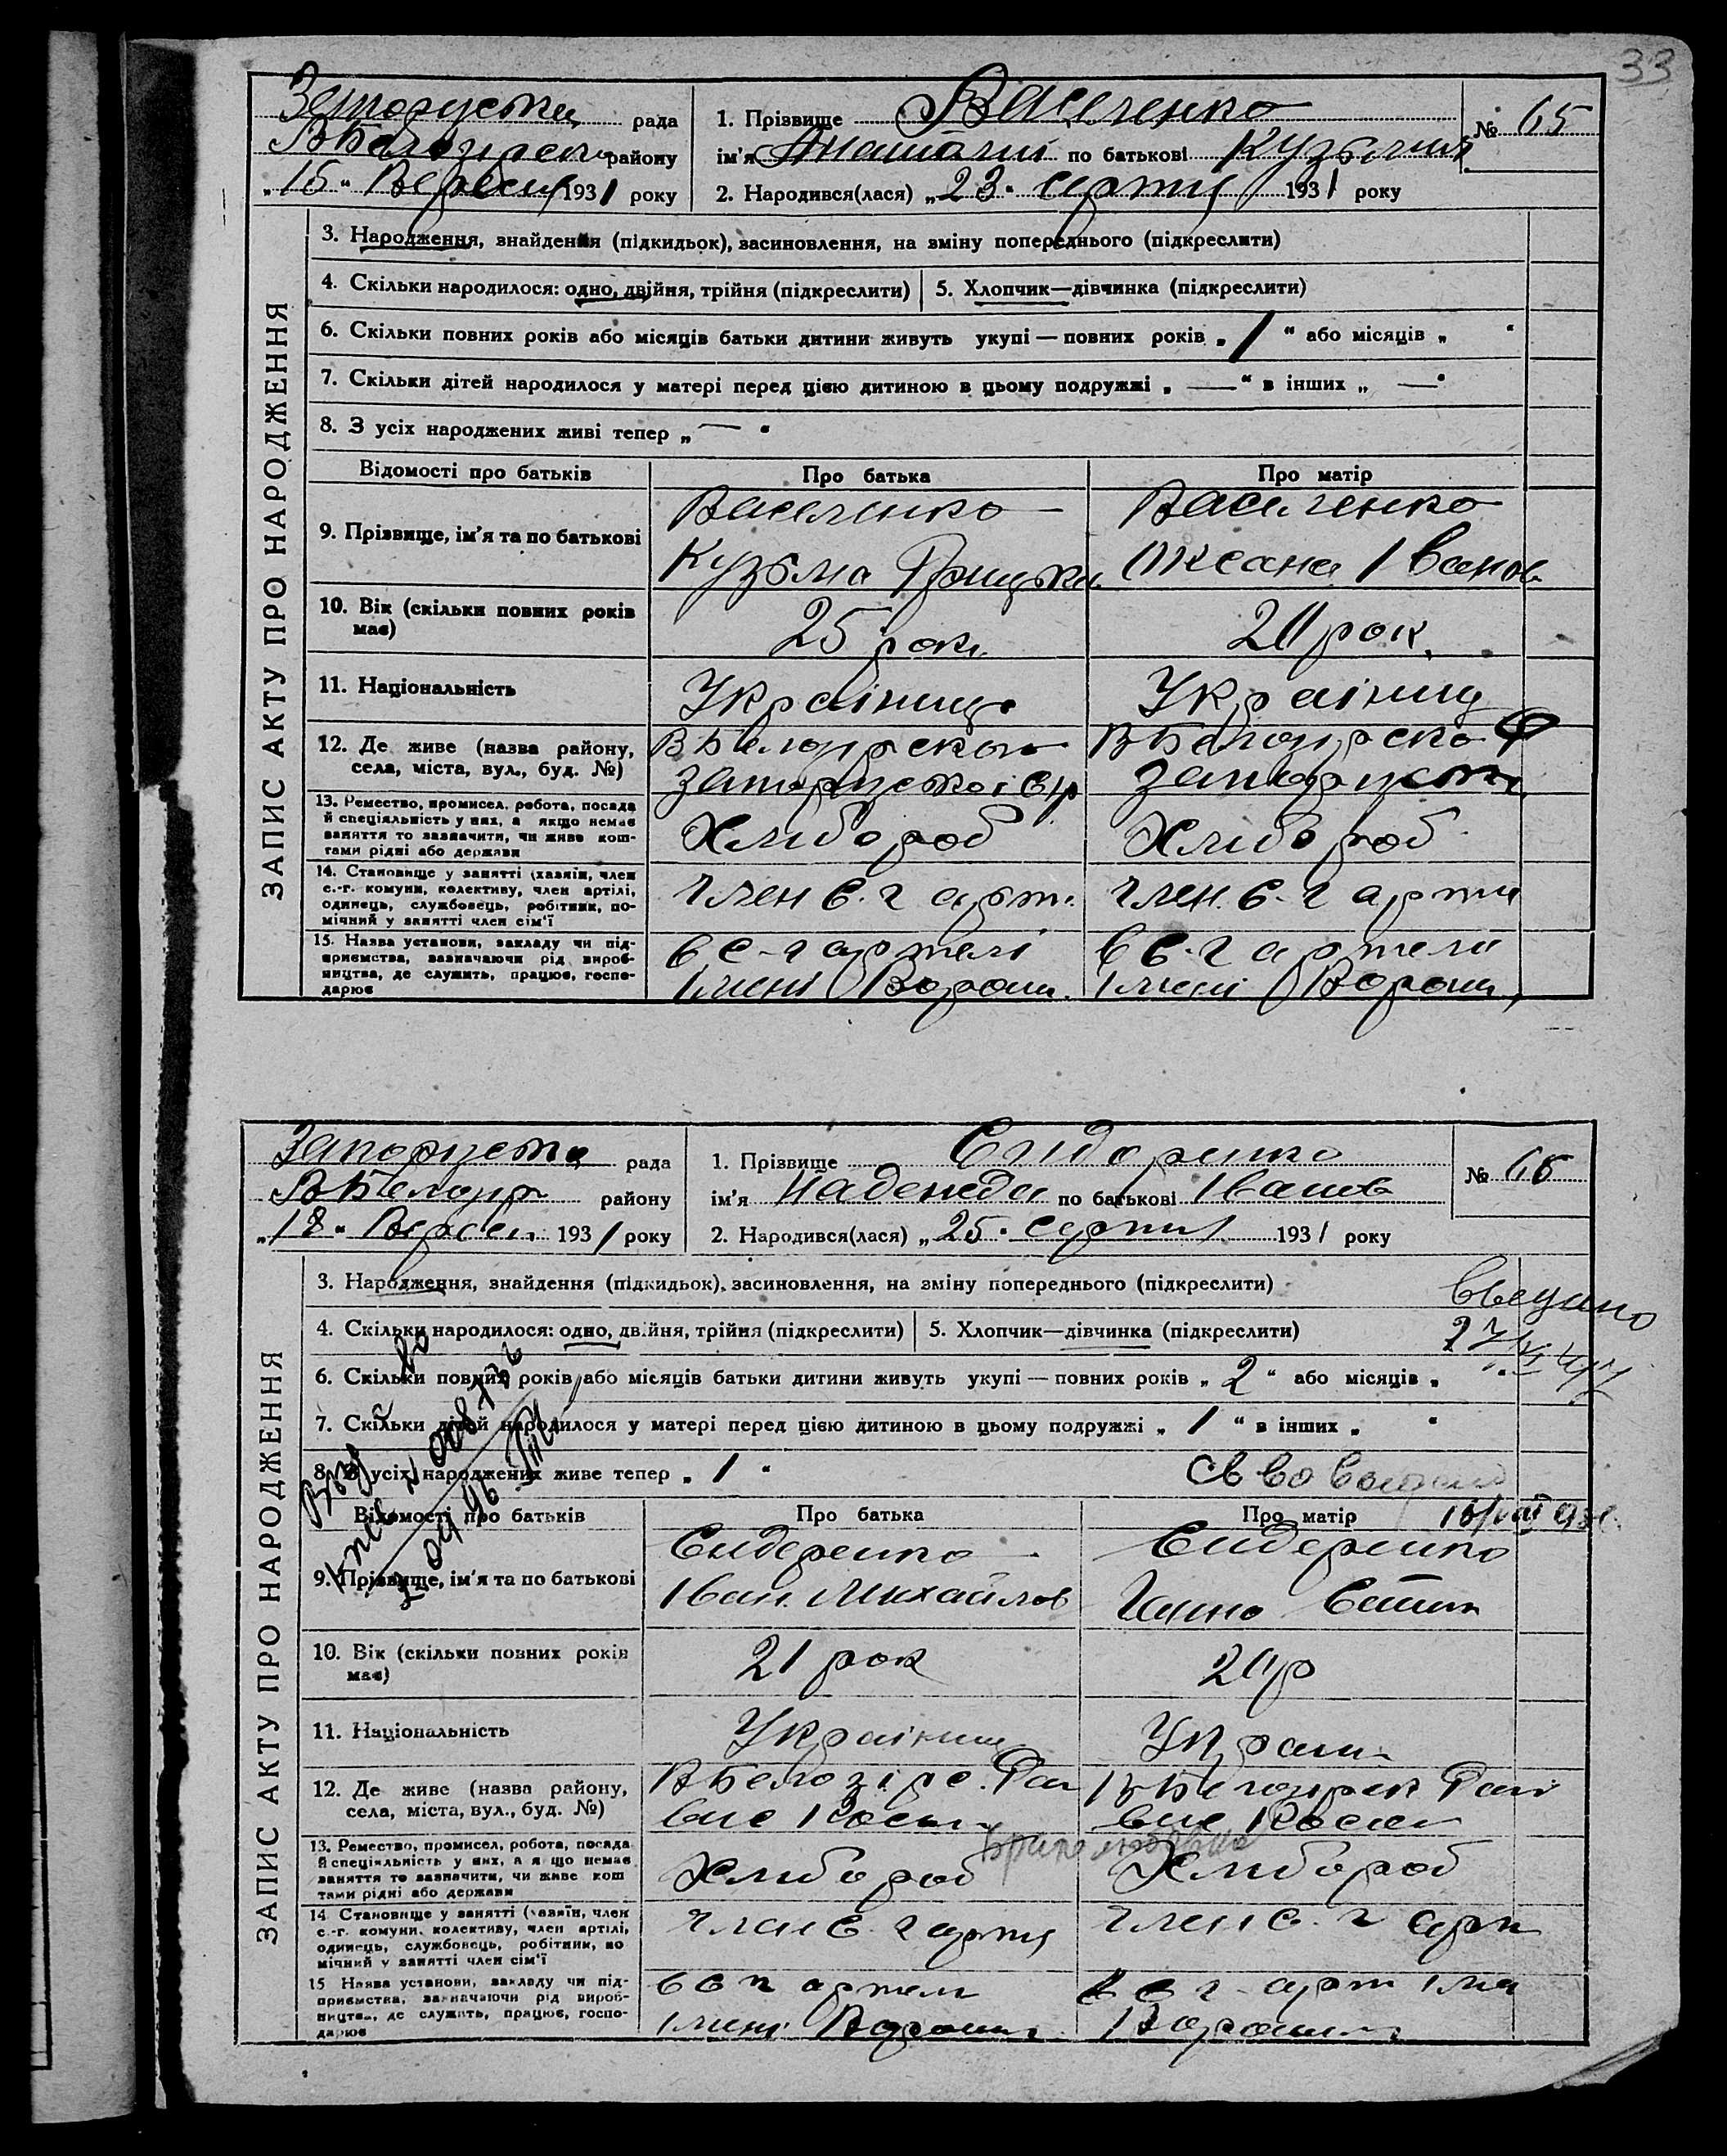 33
Запоруська рада
В Білозирско району
"15" Вересня 1931 року
1. Прізвище Василенко
ім'я Анатолій по батькові Кузьмич
2. Народився(лася) "23" серпня 1931 року
№ 65
ЗАПИС АКТУ ПРО НАРОДЖЕННЯ
3. Народження, знайдення (підкидьок), засиновлення, на зміну попереднього (підкреслити)
4. Скільки народилося: одно, двійня, трійня (підкреслити)
5. Хлопчик—дівчинка (підкреслити)
6. Скільки повних років або місяців батьки дитини живуть укупі — повних років „ 1 “ або місяців „ “
7. Скільки дітей народилося у матері перед цією дитиною в цьому подружжі „ — “ в інших „ — “
8. З усіх народжених живі тепер „ — “
Відомості про батьків
Про батька
Про матір
9. Прізвище, ім'я та по батькові
Василенко
Кузьма Грицьк.
Василенко
Оксана Іванов
10. Вік (скільки повних років
має)
25 рок.
20 рок.
11. Національність
Українец
Україниц
12. Де живе (назва району,
села, міста, вул., буд. №)
В Белозирског
Запоруської с/р
В Белозирско
Запоруськ
13. Ремество, промисел, робота, посада
й спеціяльність у них, а якщо немає
заняття то зазначити, чи живе кош-
тами рідні або держави
Хлибороб
Хлибороб
14. Становище у занятті (хазяїн, член
с.-г. комуни, колективу, член артілі,
одинець, службовець, робітник, по-
мічний у занятті член сім'ї
член с. г арт.
член с. г арти
15. Назва установи, закладу чи під-
приємства, зазначаючи рід вироб-
ництва, де служить, працює, госпо-
дарює
в с-г артелі
Імені Ворош.
в с-г артели
Імені Ворош.
Запоруська рада
В Белозир району
"18" Вересн 1931 року
1. Прізвище Сидоренко
ім'я Надежда по батькові Іванов
2. Народився(лася) "25" серпня 1931 року
№ 66
ЗАПИС АКТУ ПРО НАРОДЖЕННЯ
3. Народження, знайдення (підкидьок), засиновлення, на зміну попереднього (підкреслити)
4. Скільки народилося: одно, двійня, трійня (підкреслити)
5. Хлопчик—дівчинка (підкреслити)
6. Скільки повних років або місяців батьки дитини живуть укупі — повних років „ 2 “ або місяців „
7. Скільки дітей народилося у матері перед цією дитиною в цьому подружжі „ 1 “ в інших „ “
8. З усіх народжених живе тепер „ 1 “
св во
Відомості про батьків
Про батька
Про матір
9. Прізвище, ім'я та по батькові
Сидеренко
Іван. Михайлов
Сидеренко
Ганна Степан
10. Вік (скільки повних років
має)
21 рок
20 р
11. Національність
Україниц
Україн
12. Де живе (назва району,
села, міста, вул., буд. №)
В Белозірс. Рай
В Белозирск Рай
13. Ремество, промисел, робота, посада
й спеціяльність у них, а якщо немає
заняття то зазначити, чи живе кош
тами рідні або держави
Хлибороб
Хлибороб
14 Становище у занятті (хазяїн, член
с.-г. комуни, колективу, член артілі,
одинець, службовець, робітник, по
мічний у занятті член сім'ї
член с. г арти
член с. г арт
15 Назва установи, закладу чи під-
приємства, зазначаючи рід вироб-
ництва, де служить, працює, госпо-
дарює
в с г артели
Імені Ворошил
в с г - арт Іме
Ворошил